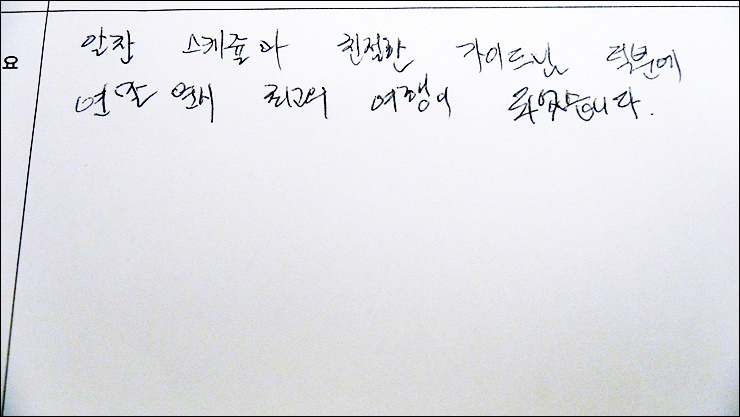 요
알찬 스케쥴과 친절한 가이드님 덕분에
연말 연시 최고의 여행이 되었습니다.